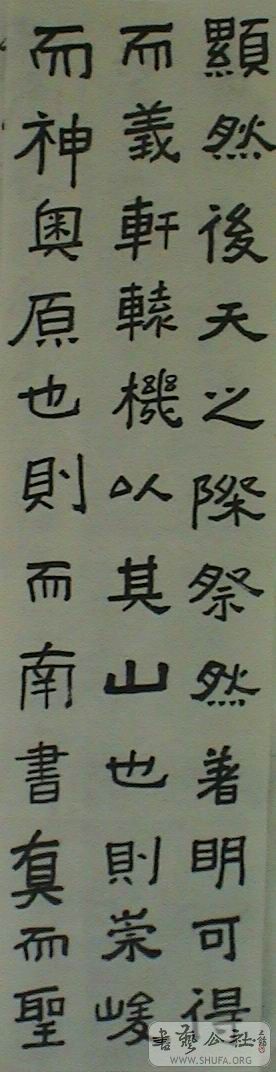 顯然後天之際祭然著明可得
而義軒轅機以其山也則崇峻
而神奥原也則而南書真而聖
書藝公社
WWW.SHUFA.ORG